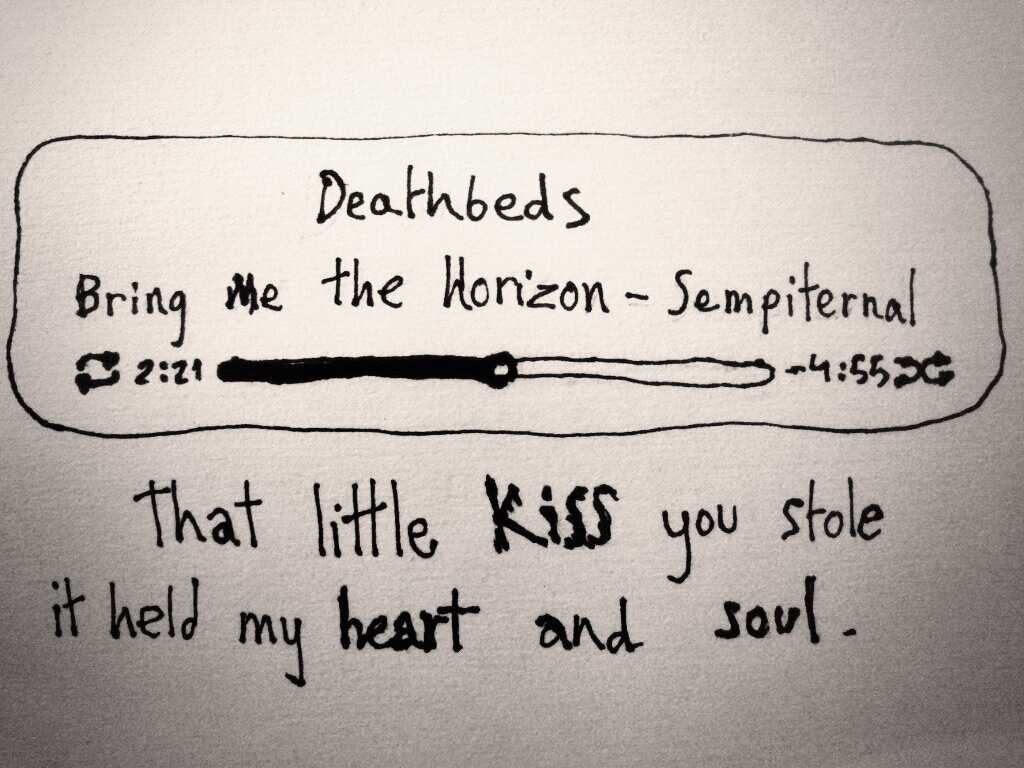 Deathbeds
Bring Me the Horizon - Sempiternal
2:21 -4:55
That little Kiss you stole
it held my heart and soul.